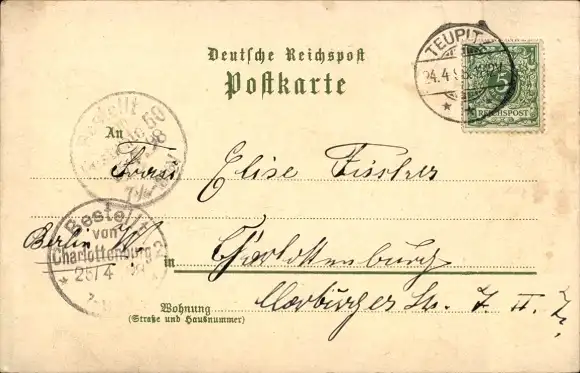 Deutsche Reichspost
Postkarte
TEUPITZ
24.4.98
5
REICHSPOST
Bestellt
An
Frau Elise Fischer
Bestellt
von
Charlottenburg 2
25/4
Berlin W
in Charlottenburg
Marburger Str. 7. II. I.
Wohnung
(Straße und Hausnummer)